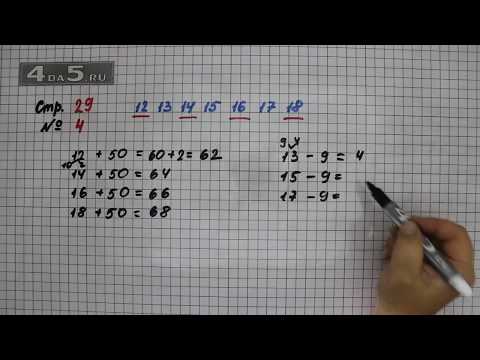 4DA5.RU
Стр. 29 12 13 14 15 16 17 18
№ 4
12 + 50 = 60 + 2 = 62
10 2
14 + 50 = 64
16 + 50 = 66
18 + 50 = 68
9 4
13 - 9 = 4
15 - 9 =
17 - 9 =